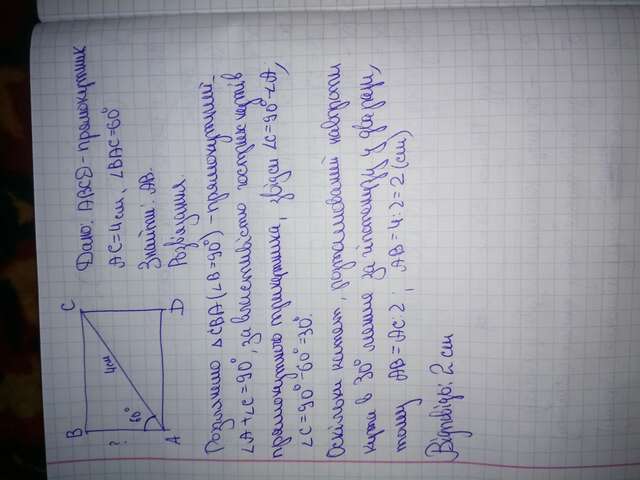 B
C
?
60°
4см
A
D
Дано: ABCD - прямокутник
AC=4см, ∠BAC=60°
Знайти: AB.
Розв'язання.
Розглянемо △CBA(∠B=90°) - прямокутний.
∠A+∠C=90°, за властивістю гострих кутів
прямокутного трикутника, звідси ∠C=90°-∠A,
∠C=90°-60°=30°.
Оскільки катет, розташований навпроти
кута в 30° менше за гіпотенузу у два рази,
тому AB=AC:2; AB=4:2=2(см)
Відповідь: 2 см